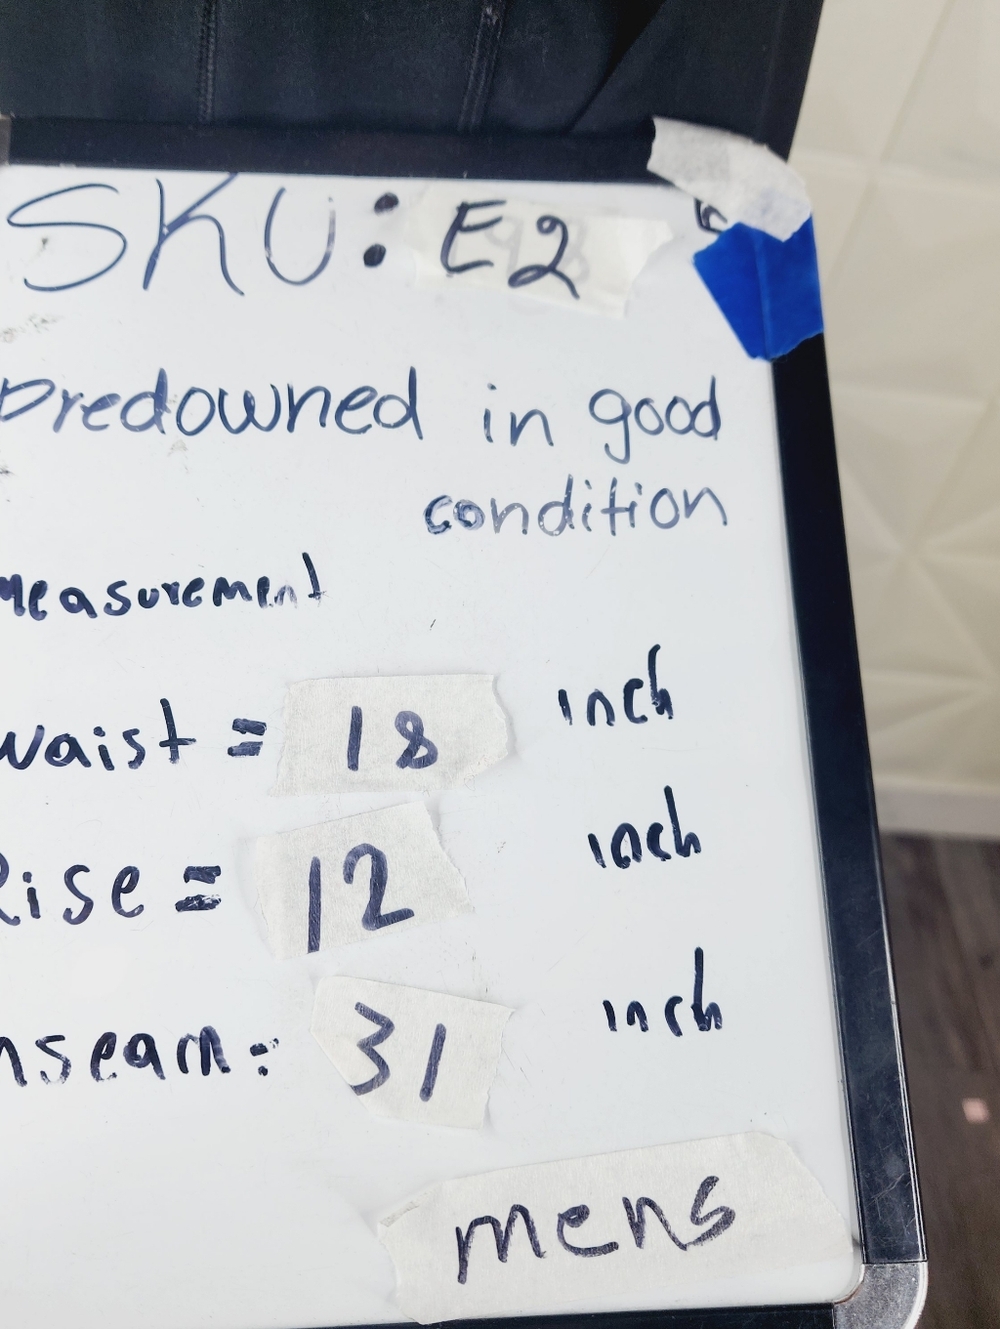 SKU: E2
predowned in good
condition
measurement
waist = 18 inch
Rise = 12 inch
nseam: 31 inch
mens